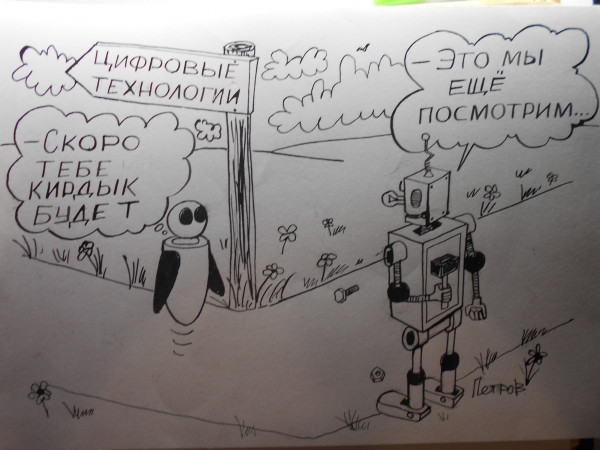 ЦИФРОВЫЕ
ТЕХНОЛОГИИ
-СКОРО
ТЕБЕ
КИРДЫК
БУДЕТ
-ЭТО МЫ
ЕЩЁ
ПОСМОТРИМ...
Петров